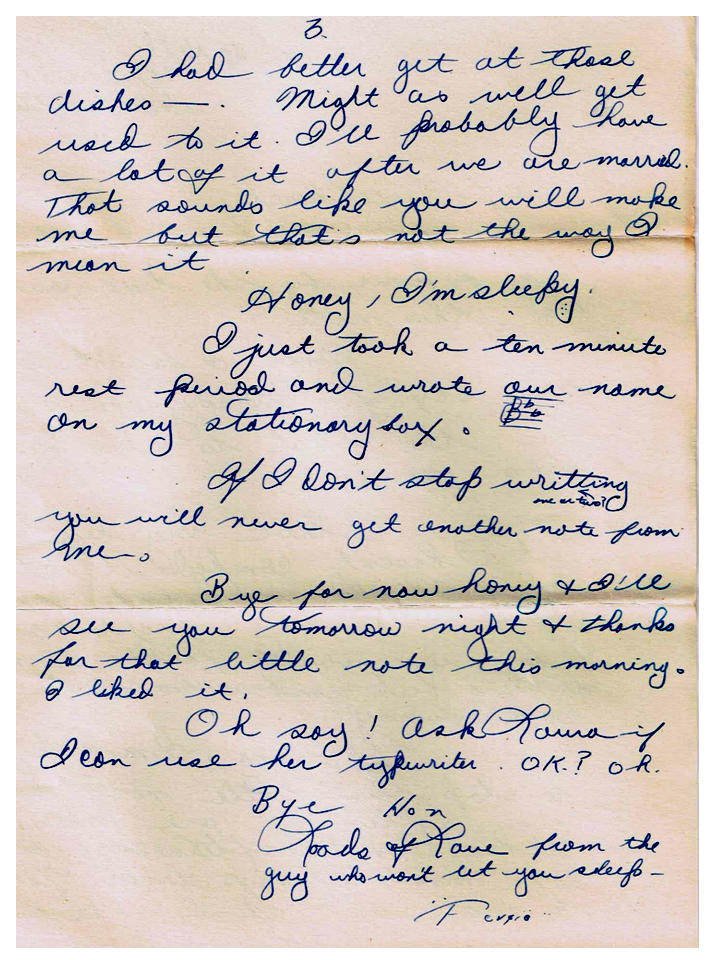 3.
I had better get at those
dishes —. Might as well get
used to it. I'll probably have
a lot of it after we are married.
That sounds like you will make
me but that's not the way I
mean it
Honey, I'm sleepy.
I just took a ten minute
rest period and wrote our name
on my stationary box.
If I don't stop writting
one or two?
you will never get another note from
me.
Bye for now honey & I'll
see you tomorrow night & thanks
for that little note this morning.
I liked it.
Oh say! Ask Laura if
I can use her typewriter. OK.? OK.
Bye Hon
Loads of Love from the
guy who won't let you sleep—